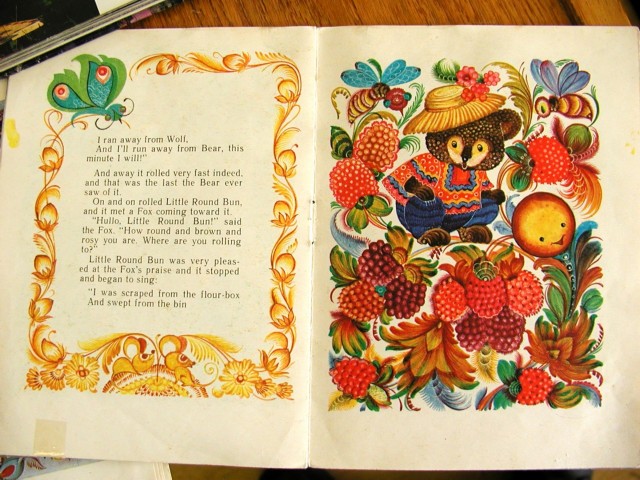 I ran away from Wolf,
And I'll run away from Bear, this
minute I will!"
And away it rolled very fast indeed,
and that was the last the Bear ever
saw of it.
On and on rolled Little Round Bun,
and it met a Fox coming toward it.
"Hullo, Little Round Bun!" said
the Fox. "How round and brown and
rosy you are. Where are you rolling
to?"
Little Round Bun was very pleas-
ed at the Fox's praise and it stopped
and began to sing:
"I was scraped from the flour-box
And swept from the bin